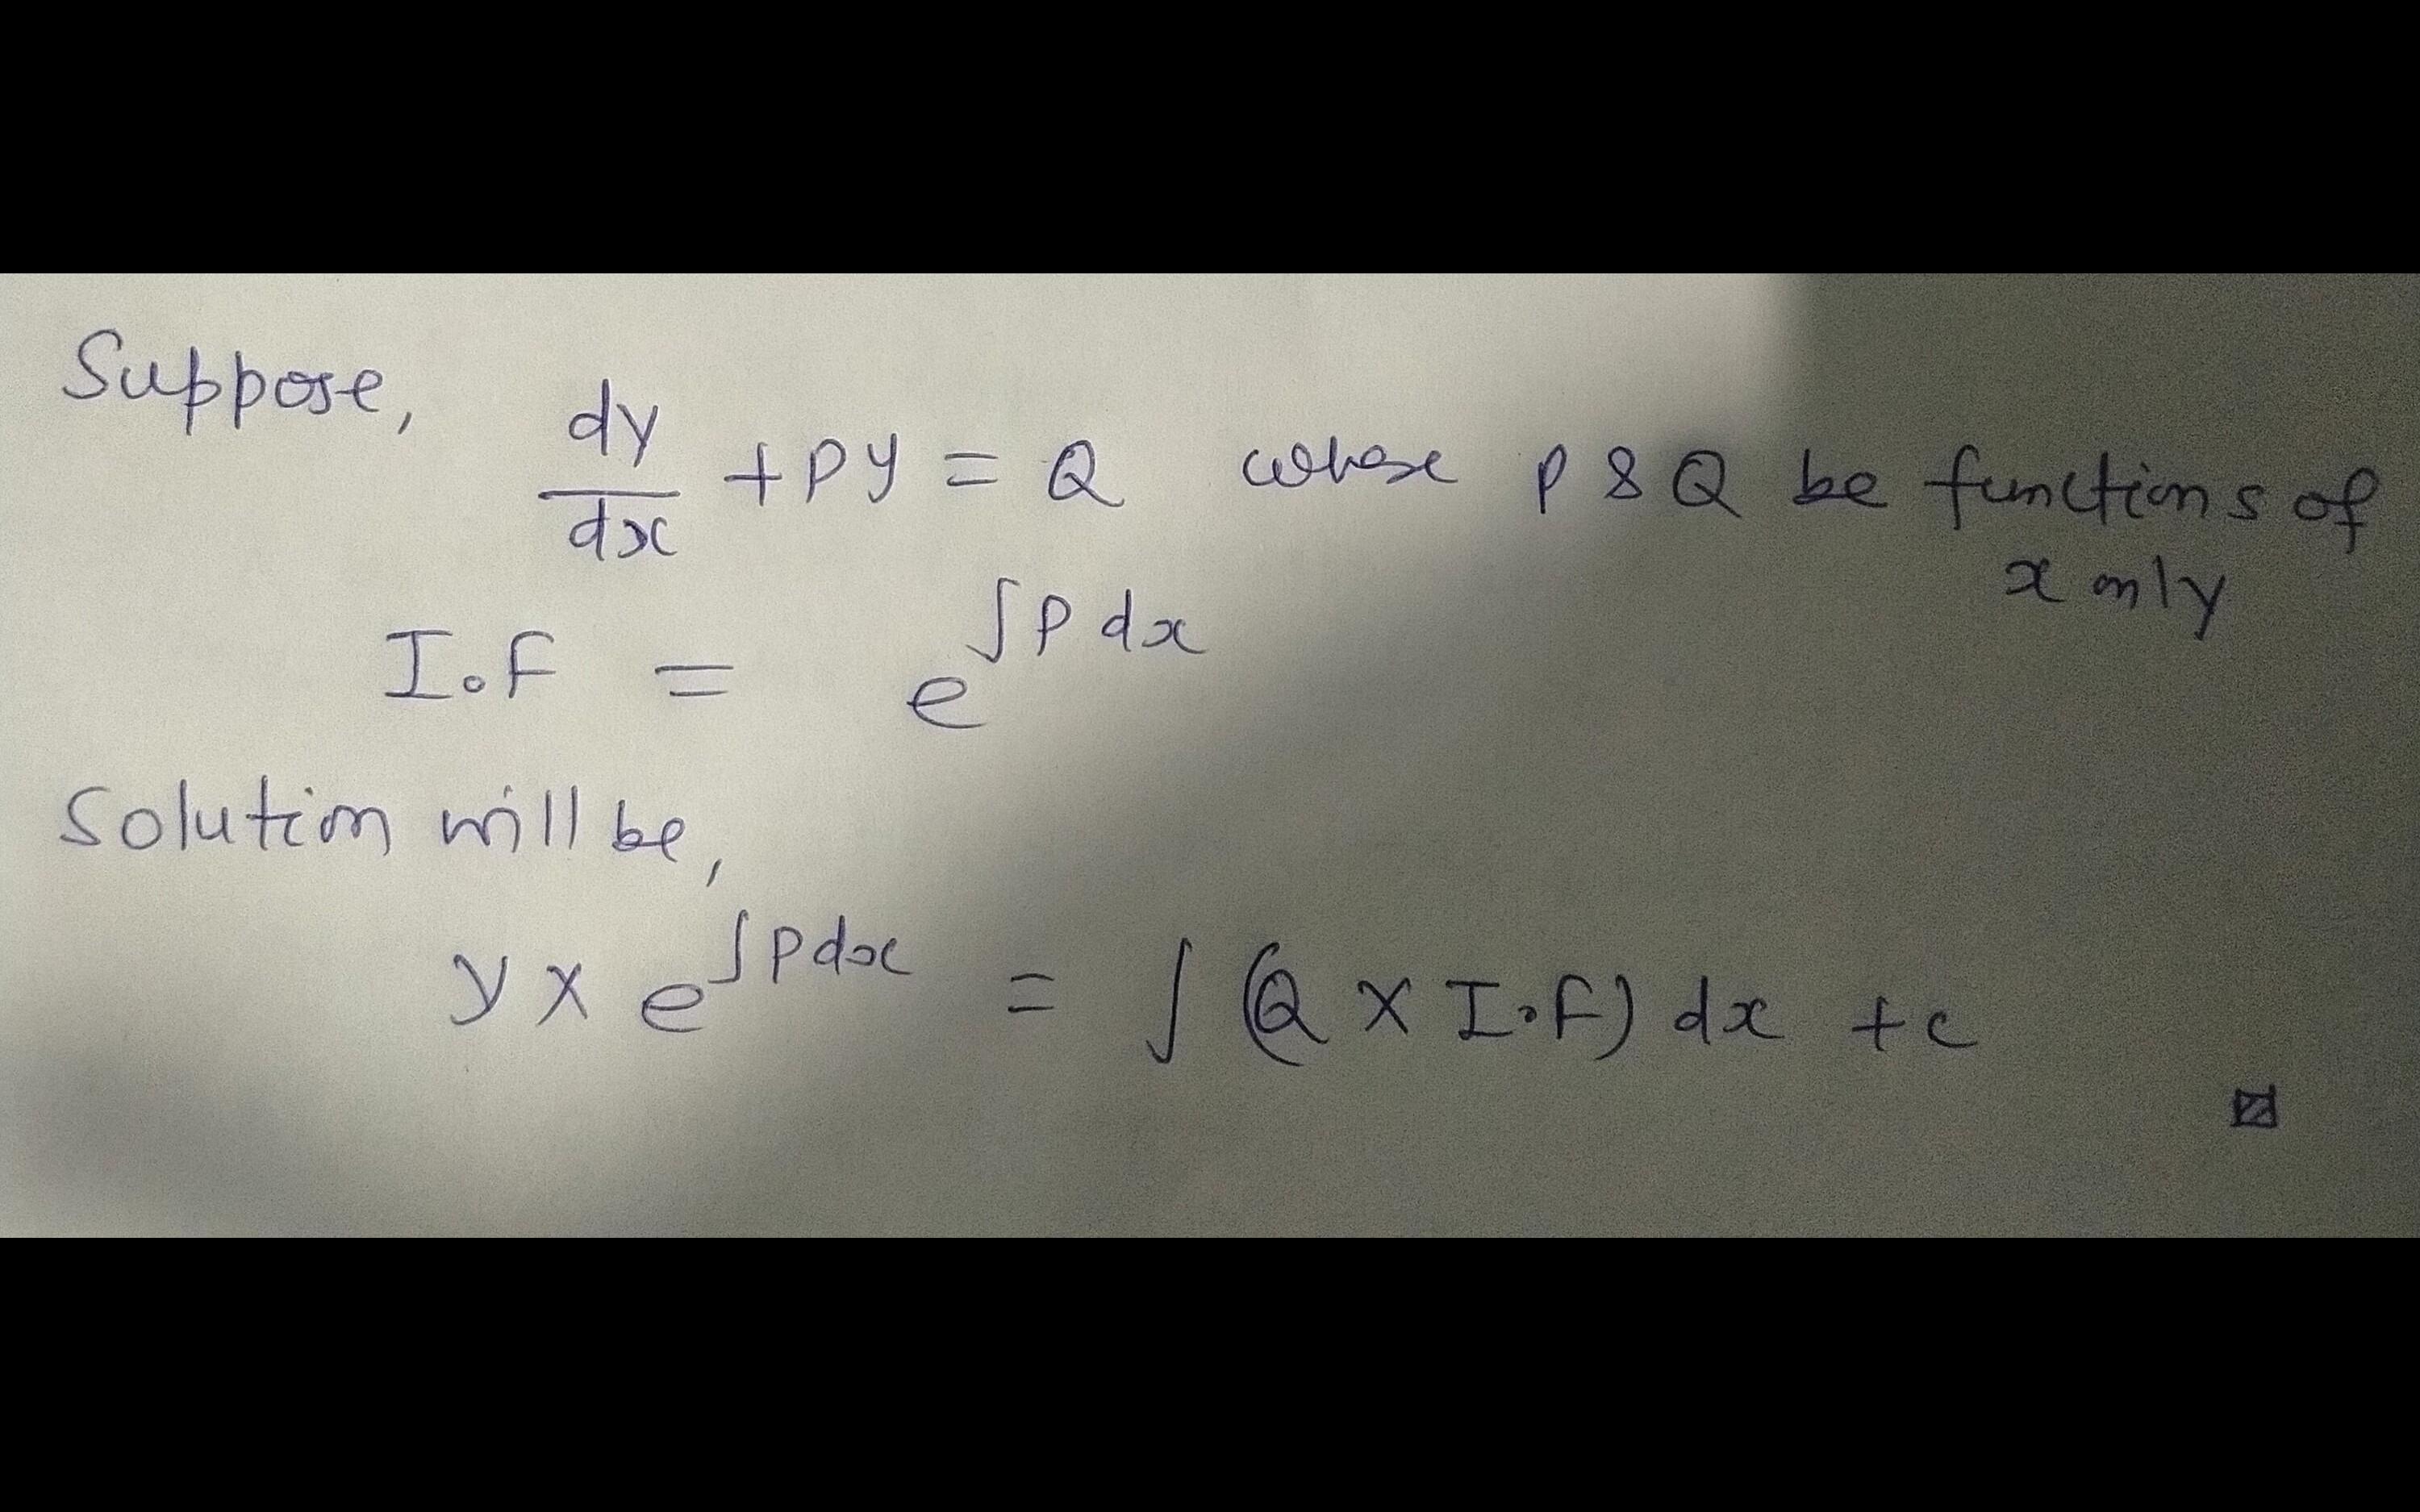 Suppose,
dy/dx + Py = Q where P & Q be functions of
x only
I.F = e^∫P dx
Solution will be,
y × e^∫P dx = ∫ (Q × I.F) dx + c